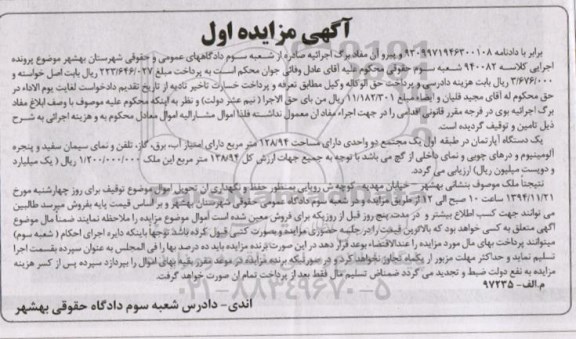 آگهی مزایده اول
برابر با دادنامه ۹۳۰۹۹۷۱۹۴۶۳۰۰۱۰۸ و پیرو آن مفاد برگ اجرائیه صادره از شعبه سوم دادگاههای عمومی و حقوقی شهرستان بهشهر موضوع پرونده
اجرایی کلاسه ۹۴۰۰۸۲ شعبه سوم حقوقی محکوم علیه آقای عادل وفائی جوان محکم است به پرداخت مبلغ ۲۲۳/۶۴۶/۰۲۷ ریال بابت اصل خواسته و
۳/۶۷۶/۰۰۰ ریال بابت هزینه دادرسی و پرداخت حق الوکاله وکیل مطابق تعرفه و پرداخت خسارت تاخیر تادیه از تاریخ تقدیم دادخواست لغایت یوم الاداء در
حق محکوم له آقای مجید قلیان و ایضاء مبلغ ۱۱/۱۸۲/۳۰۱ ریال من بای حق الاجرا (نیم عشر دولت) و نظر به اینکه محکوم علیه موصوف با وصف ابلاغ مفاد
برگ اجرائیه بوی در فرجه مقرر قانونی اقدامی را در جهت اجراء مفاد آن معمول نداشته فلذا اموال مشارالیه اموال معادل محکوم به و هزینه اجرائی به شرح
ذیل تامین و توقیف گردیده است.
یک دستگاه آپارتمان در طبقه اول یک مجتمع دو واحدی دارای مساحت ۱۲۸/۹۴ متر مربع دارای امتیاز آب، برق، گاز، تلفن و نمای سیمان سفید و پنجره
آلومینیوم و درهای چوبی و نمای داخلی از گچ می باشد با توجه به جمیع جهات ارزش کل ۱۲۸/۹۴ متر مربع این ملک ۱/۲۰۰/۰۰۰/۰۰۰ ریال (یک میلیارد
و دویست میلیون ریال) ارزیابی می گردد.
نتیجتاً ملک موصوف بنشانی بهشهر - خیابان مهدیه- کوچه ش رویایی بمنظور حفظ و نگهداری آن تحویل اموال موضوع توقیف برای روز چهارشنبه مورخ
۱۳۹۴/۱۱/۲۱ ساعت ۱۰ صبح الی ۱۲ از طریق مزایده و در شعبه سوم دادگاه عمومی حقوقی شهرستان بهشهر و بر اساس قیمت پایه بفروش میرسد طالبین
می توانند جهت کسب اطلاع بیشتر و در مدت پنج روز قبل از روزیکه برای فروش معین شده است اموال موضوع مزایده را ملاحظه نمایند ضمناً مال موضوع
آگهی متعلق به کسی خواهد بود که بالاترین قیمت را در جلسه حضوری مزایده و بصورت کتبی قبول کرده باشد توجهاً باینکه دایره اجرای احکام (شعبه سوم)
میتوانند پرداخت بهای مال مورد مزایده را عندالاقتضاء بوعد قرار دهد در این صورت برنده مزایده باید ده درصد بها را فی المجلس به عنوان سپرده بقسمت اجرا
تسلیم نماید و حداکثر مهلت مزبور از یکماه تجاوز نخواهد کرد و در صورتیکه برنده مزایده در موعد مقرر بقیه بهای اموال را نپردازد سپرده پس از کسر هزینه
مزایده به نفع دولت ضبط و تجدید می گردد ضمناً تسلیم مال فقط بعد از پرداخت تمام آن صورت خواهد گرفت.
م.الف- ۹۷۲۳۵
اندی- دادرس شعبه سوم دادگاه حقوقی بهشهر
۰۲۱-۸۸۳۴۹۶۷۰-۵